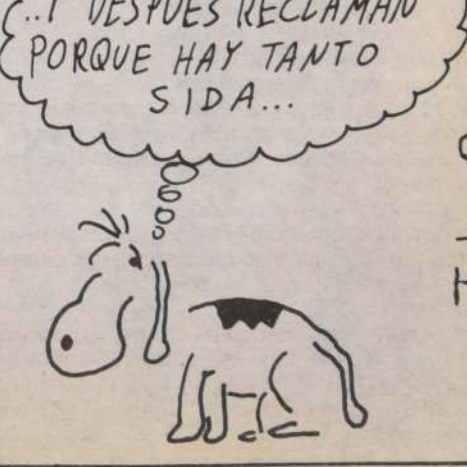 ...Y DESPUÉS RECLAMAN
PORQUE HAY TANTO
SIDA...